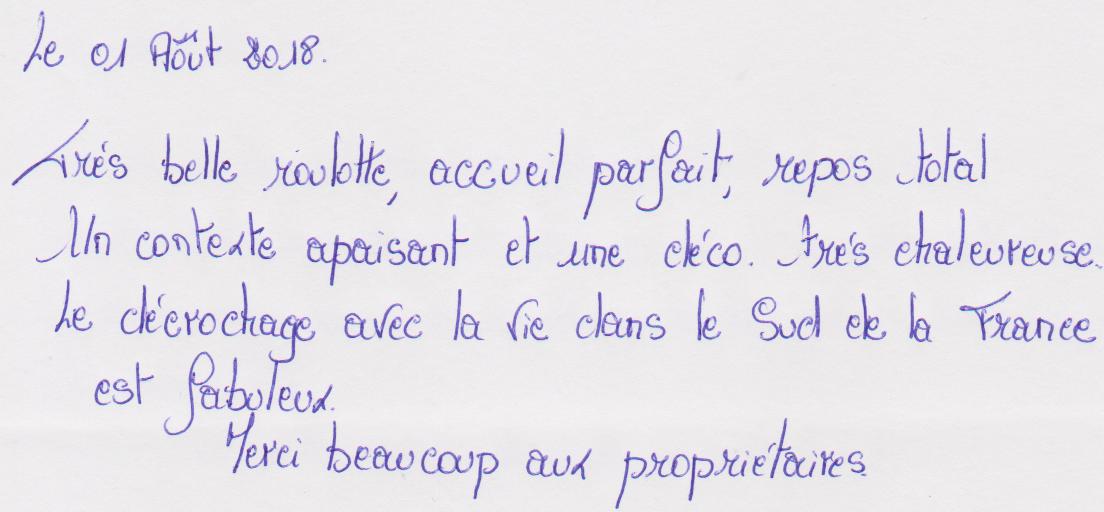 Le 01 Août 2018.
Trés belle roulotte, accueil parfait, repos total
Un contexte apaisant et une déco. trés chaleureuse.
Le décrochage avec la vie dans le Sud de la France
est fabuleux.
Merci beaucoup aux propriétaires